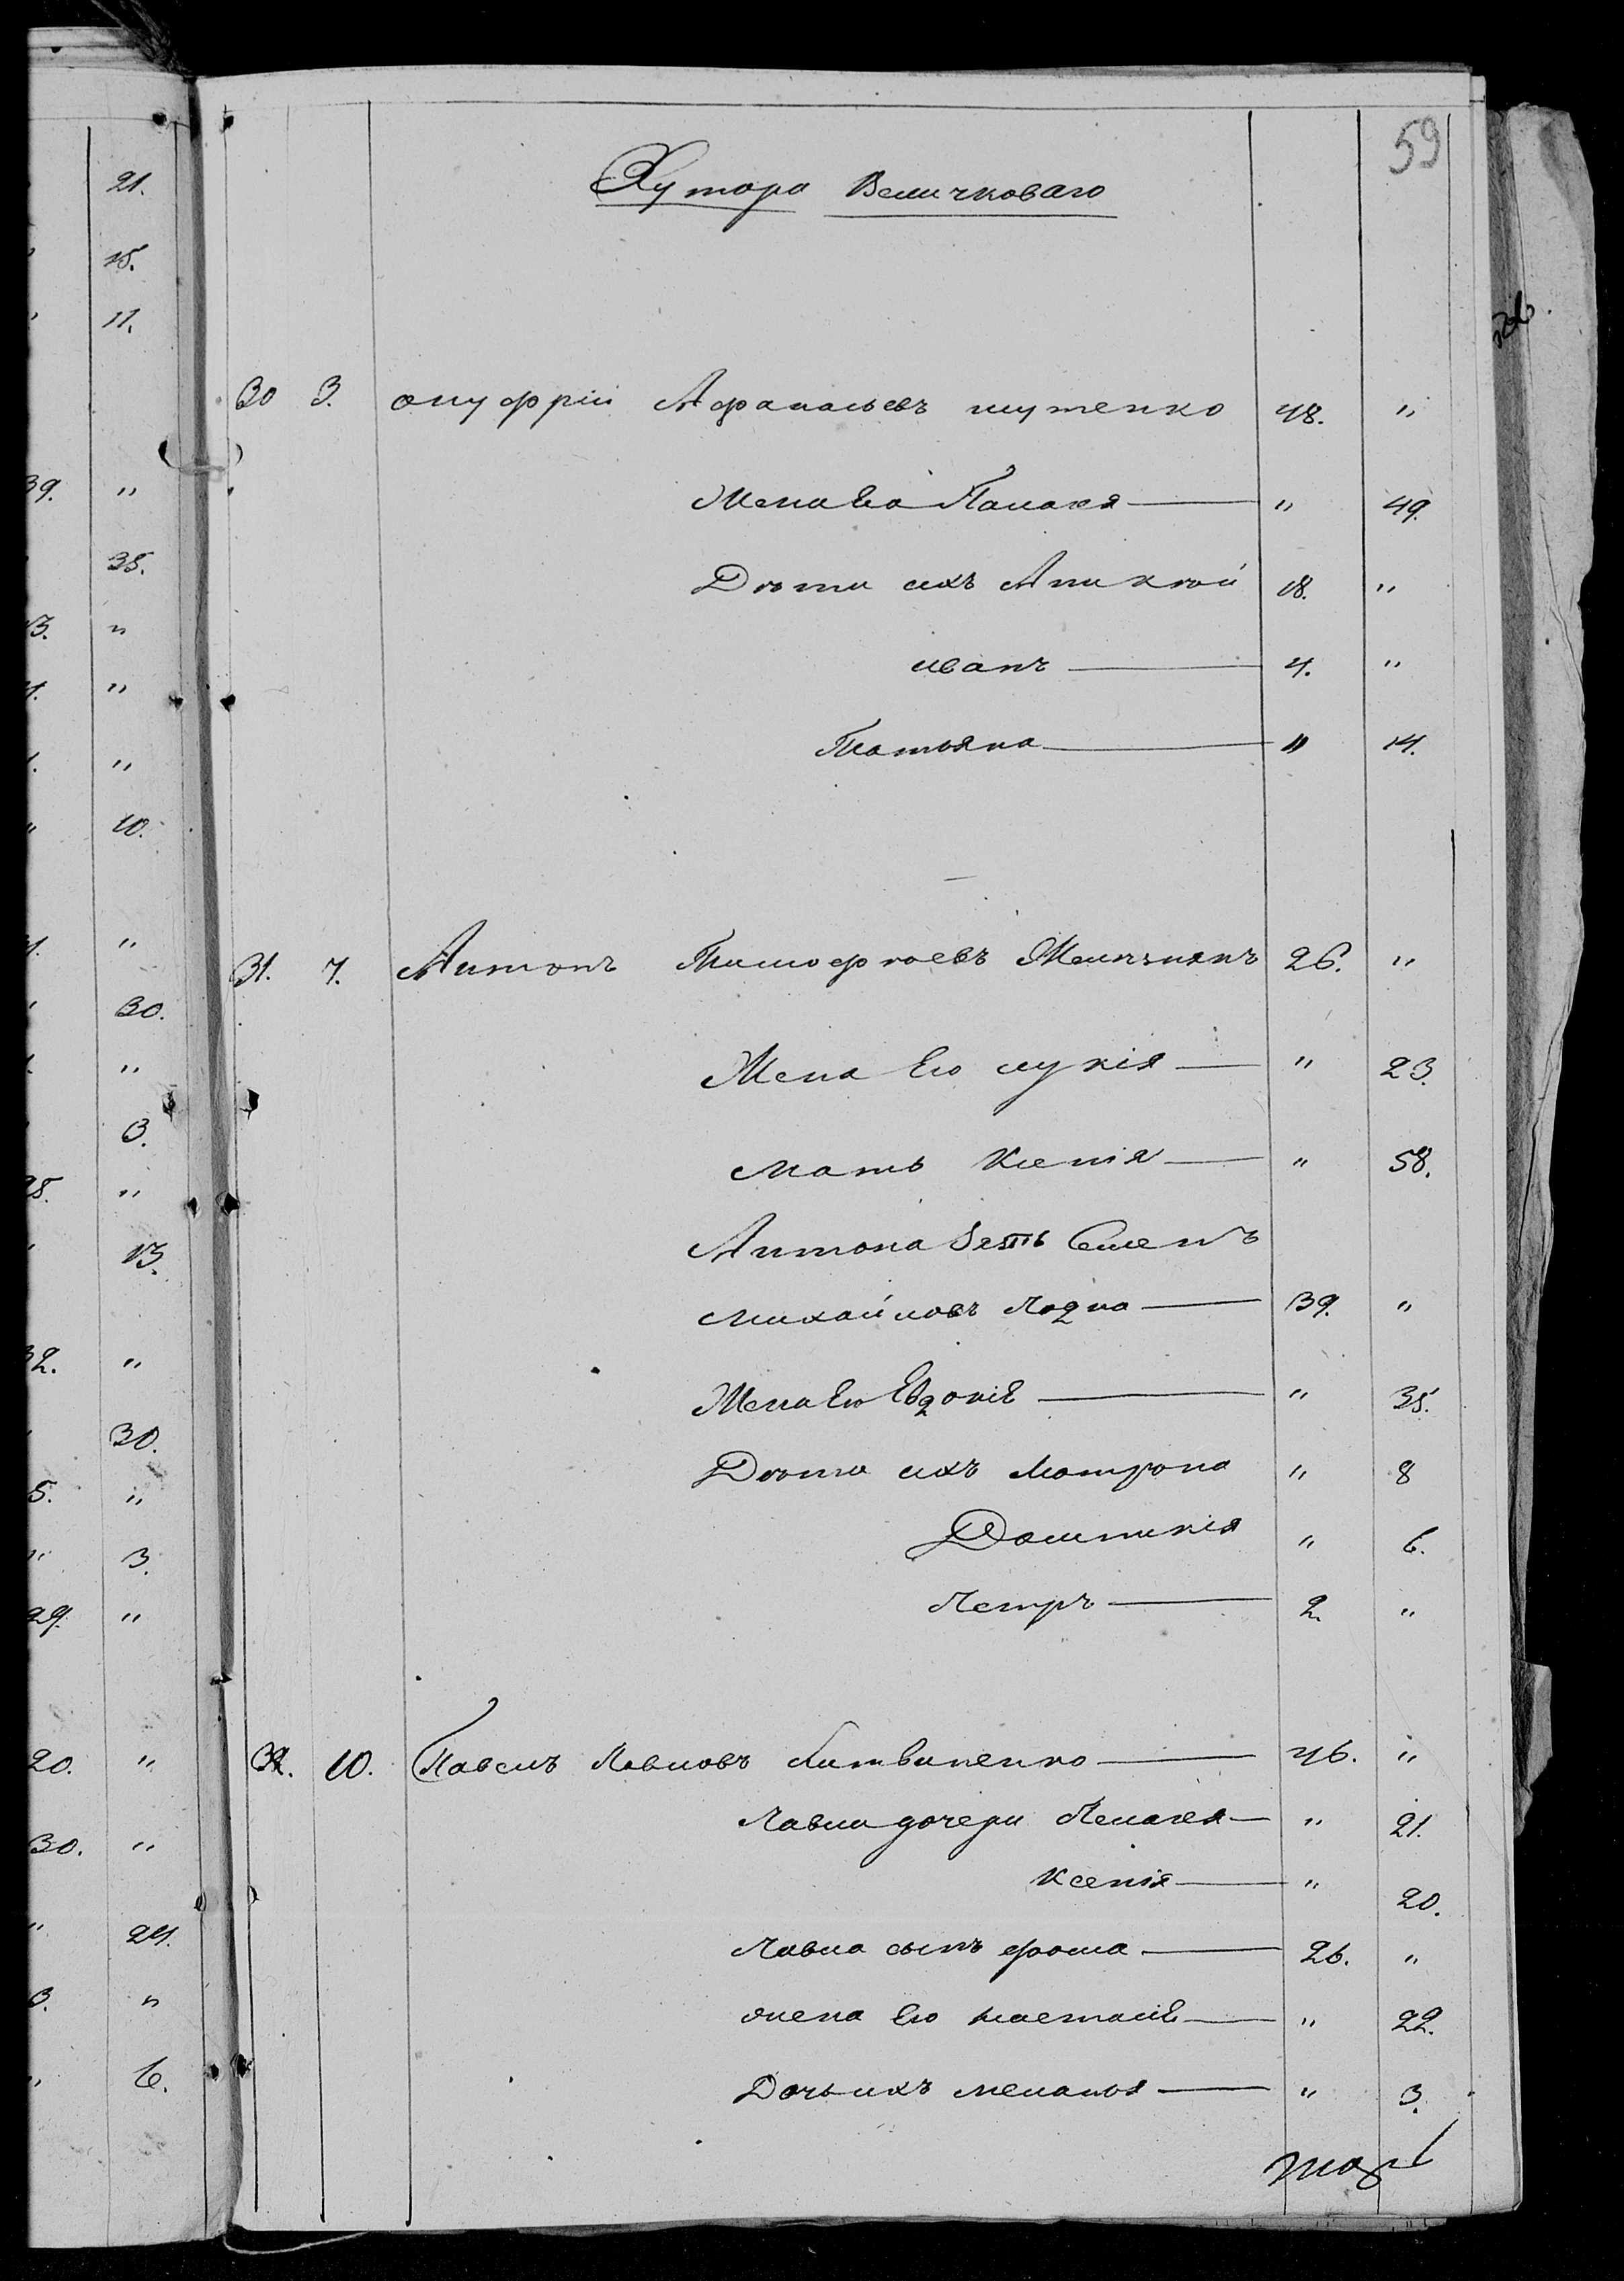 59
Хутора Величковаго
30 3. онуфрій Афанасьевъ шутенко 48. "
Жена Его Палагея " 49.
Дѣти ихъ Антній 18. "
иванъ 4. "
Татьяна " 14.
31. 7. Антонъ Тимофѣевъ 26. "
Жена Его лукія " 23.
Мать Ксенія " 58.
Антона Зять Семенъ
Михайловъ 39. "
Жена Его Евдокія " 35.
Дѣти ихъ Матрона " 8
Домникія " 6.
Петръ 2. "
32. 10. Павелъ Павловъ Литвиненко 46. "
Павла дочери Пелагея " 21.
Ксенія " 20.
Павла сынъ фома 26. "
жена Его Настасія " 22.
Дочь ихъ меланья " 3.
21.
15.
11.
39. "
35.
13. "
"
"
" 10.
"
30.
"
3.
"
13.
32. "
30.
5. "
" 3.
29. "
20. "
30. "
" 24.
3. "
" 6.